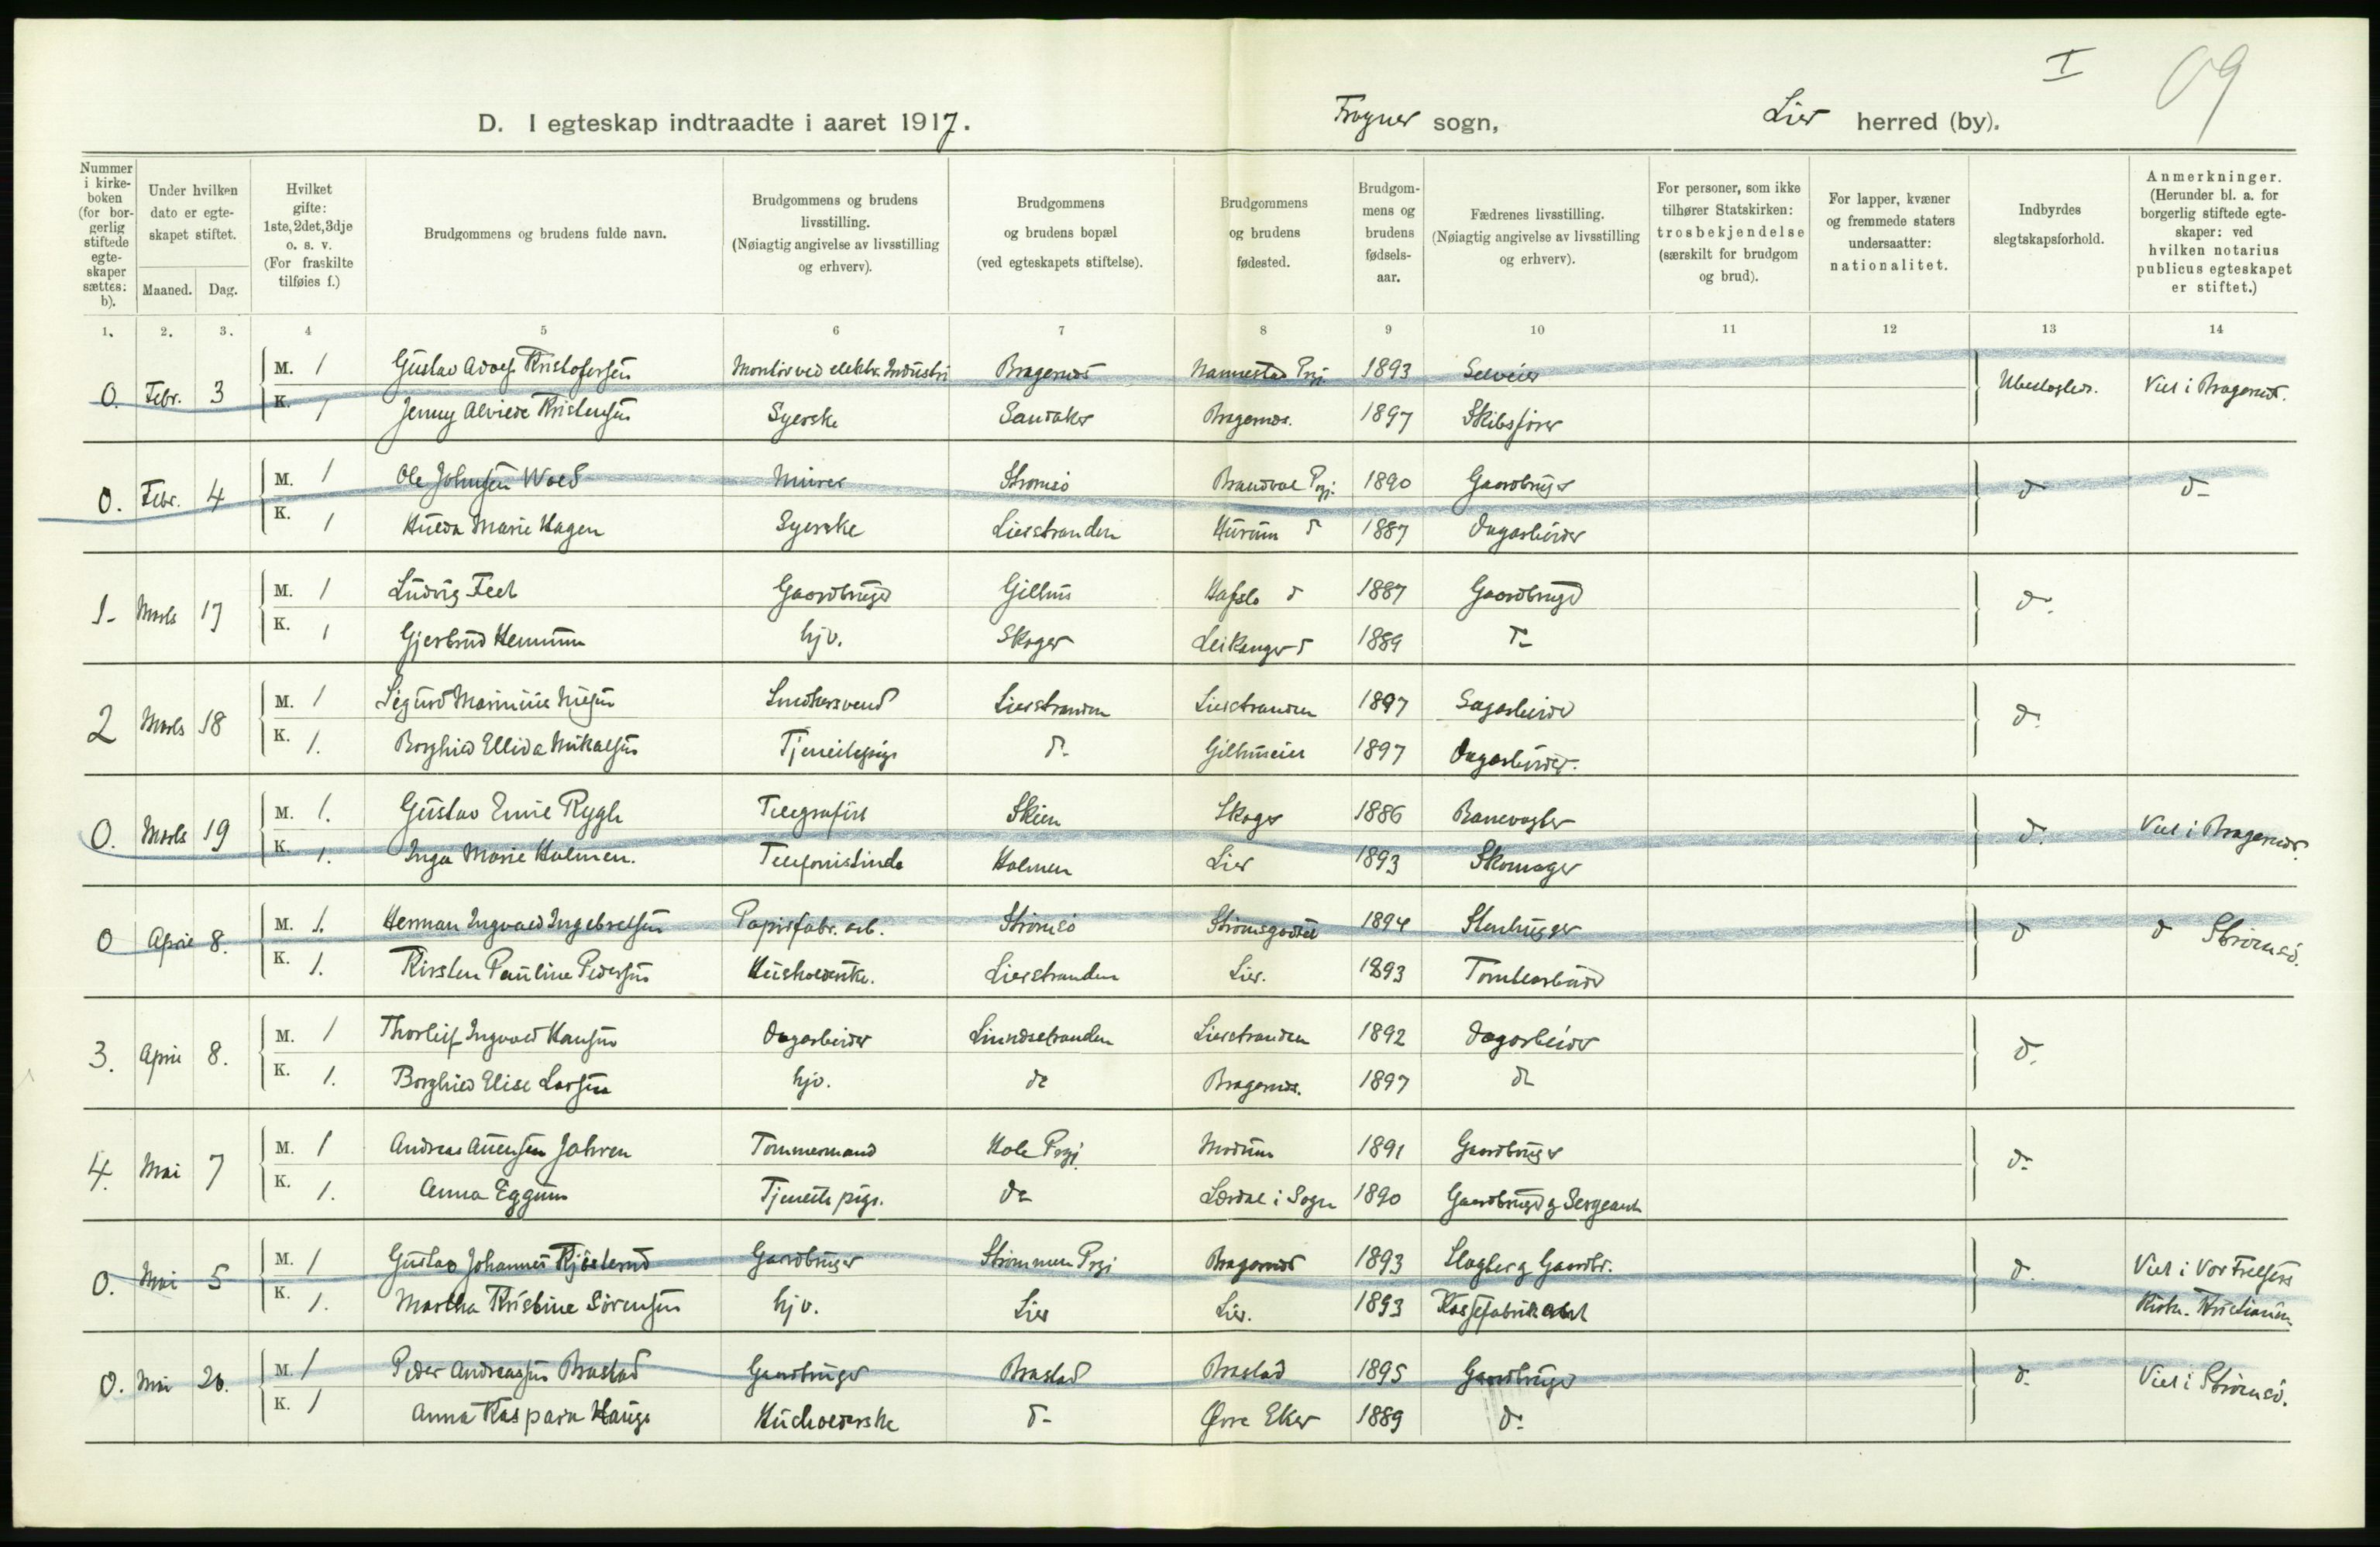 I
09
D. I egteskap indtraadte i aaret 1917. Frogner sogn, Lier herred (by).
Nummer i kirkeboken (for borgerlig stiftede egteskaper sættes: b).
Under hvilken dato er egteskapet stiftet.
Maaned. Dag.
Hvilket gifte: 1ste, 2det, 3dje o. s. v. (For fraskilte tilføies f.)
Brudgommens og brudens fulde navn.
Brudgommens og brudens livsstilling. (Nøiagtig angivelse av livsstilling og erhverv).
Brudgommens og brudens bopæl (ved egteskapets stiftelse).
Brudgommens og brudens fødested.
Brudgommens og brudens fødselsaar.
Fædrenes livsstilling. (Nøiagtig angivelse av livsstilling og erhverv).
For personer, som ikke tilhører Statskirken: trosbekjendelse (særskilt for brudgom og brud).
For lapper, kvæner og fremmede staters undersaatter: nationalitet.
Indbyrdes slegtskapsforhold.
Anmerkninger. (Herunder bl. a. for borgerlig stiftede egteskaper: ved hvilken notarius publicus egteskapet er stiftet.)
1. 2. 3. 4 5 6 7 8 9 10 11 12 13 14
0. Febr. 3 M. 1 Gustav Adolf Kristofersen Montör ved elektr. Industri Bragernes Nannestad Prgj. 1893 Selveier Ubeslegtede. Viet i Bragernes.
K. 1 Jenny Alvilde Kristensen Syerske Sandaker Bragernes. 1897 Skibsfører
0. Febr. 4 M. 1 Ole Johnsen Wold Murer Strømsö Brandval Prgj. 1890 Gaardbruger d d-
K. 1 Hulda Marie Hagen Syerske Lierstranden Hurum d 1887 Dagarbeider
1- Marts 17 M. 1 Ludvig Gaardbruger Gilhus Hafslo d 1887 Gaardbruger d-
K. 1 Gjertrud hjv. Skoger Leikanger d 1889 d-
2 Marts 18 M. 1 Sigurd Nilsen Smedsvend Lierstranden Lierstranden 1897 Sagarbeider d-
K. 1. Borghild Ellida Mikalsen Tjenestepige d- Gilhuseier 1897 Dagarbeider.
0. Marts 19 M. 1. Gustav Emil Rygh Telegrafist Skien Skoger 1886 Banevogter d. Viet i Bragernes.
K. 1. Inga Marie Holmen. Telefonistinde Holmen Lier 1893 Skomager
0 April 8. M. 1. Herman Ingvald Ingebretsen Papirfabr. arb. Strømsö Strømsgodset 1894 Stenhugger d d Strømsö.
K. 1. Kirsten Pauline Pedersen Husholderske. Lierstranden Lier. 1893 Tomtearbeider
3. April 8. M. 1 Thorleif Ingvald Hansen Dagarbeider Lierstranden 1892 Dagarbeider d.
K. 1. Borghild Elise Larsen hjv. do Bragernes. 1897 do
4. Mai 7 M. 1 Andreas Jahren Tømmermand Hole Prgj. Modum 1891 Gaardbruger d-
K. 1. Anna Eggum Tjenestepige. do Lærdal i Sogn 1890 Gaardbruger og Sergeant
0. Mai 5 M. 1 Gustav Johannes Kjösterud Gaardbruger Strømmen Prgj Bragernes 1893 Slagter og Gaardbr. d. Viet i Vor Frelsers
K. 1. Martha Kristine Sörensen hjv. Lier Lier. 1893 Kassefabrikant Kirke. Kristiania
0. Mai 20. M. 1 Peder Andreassen Brastad Gaardbruger Brastad Brastad 1895 Gaardbruger d- Viet i Strømsö.
K. 1 Anna Kaspara Hauge Husholderske d- Øvre Eker 1889 d-